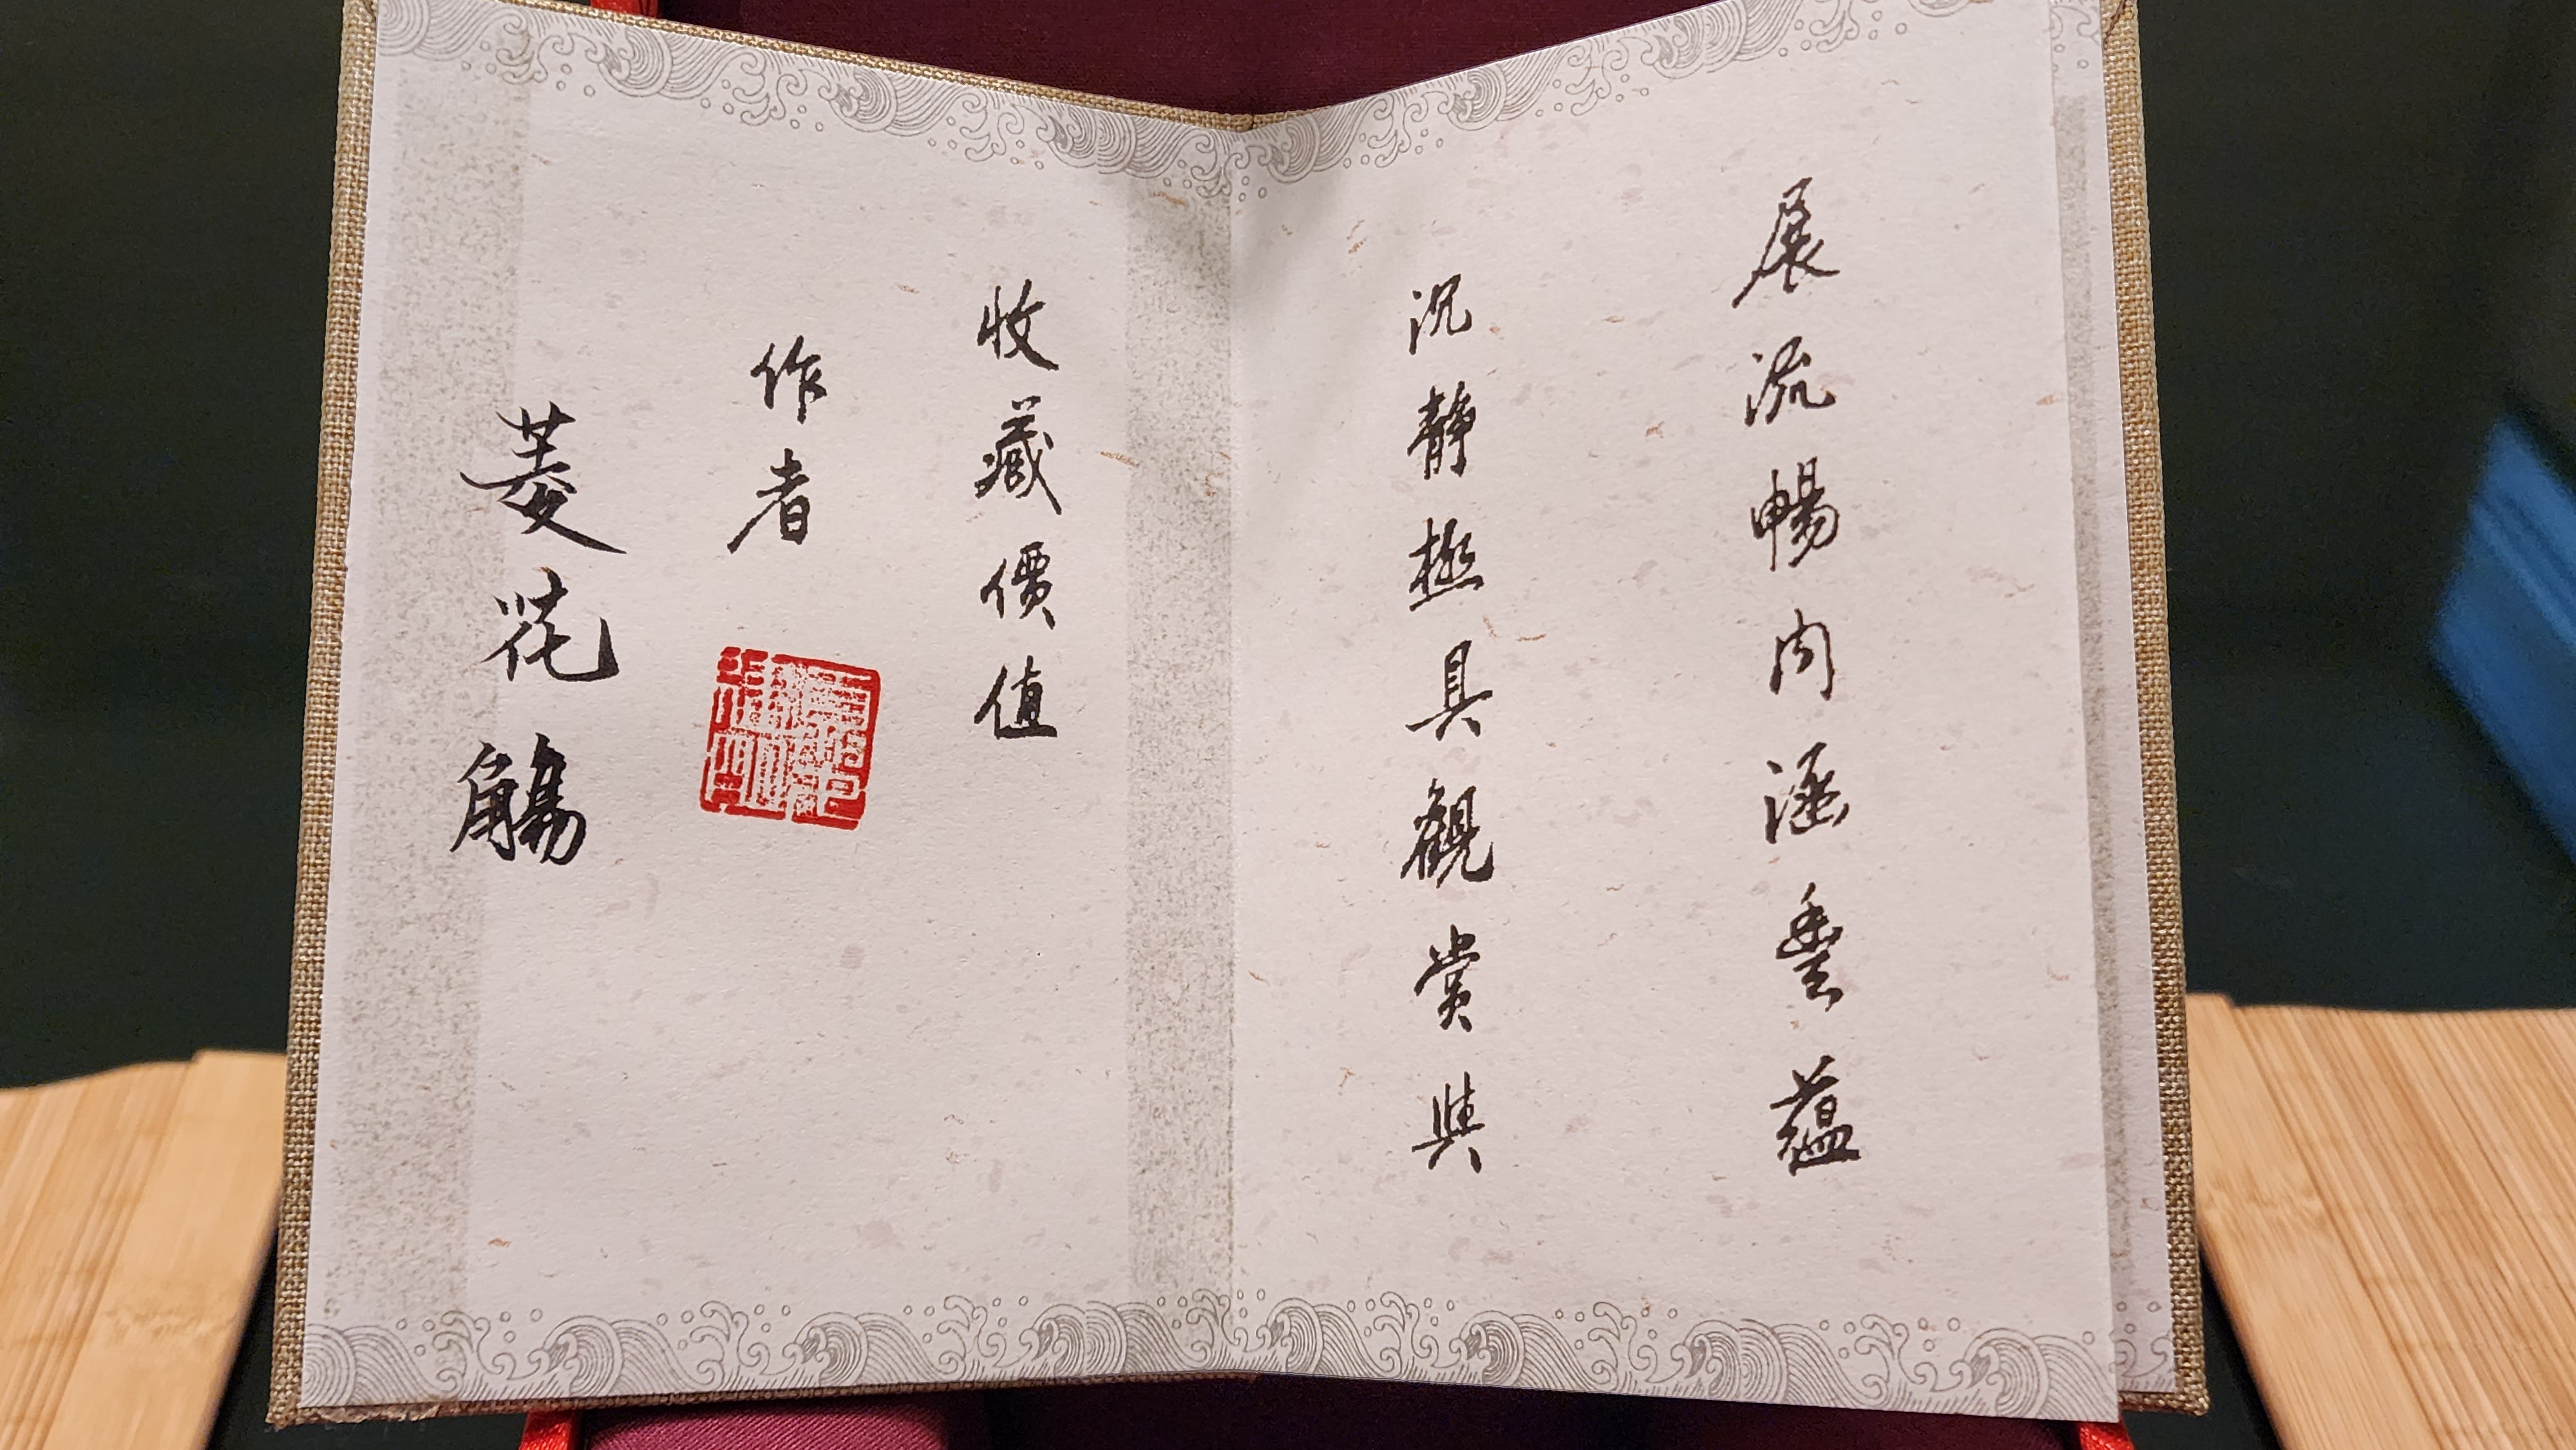 展流暢内涵豐蘊
沉靜極具觀賞與
收藏價值
作者
菱花觴